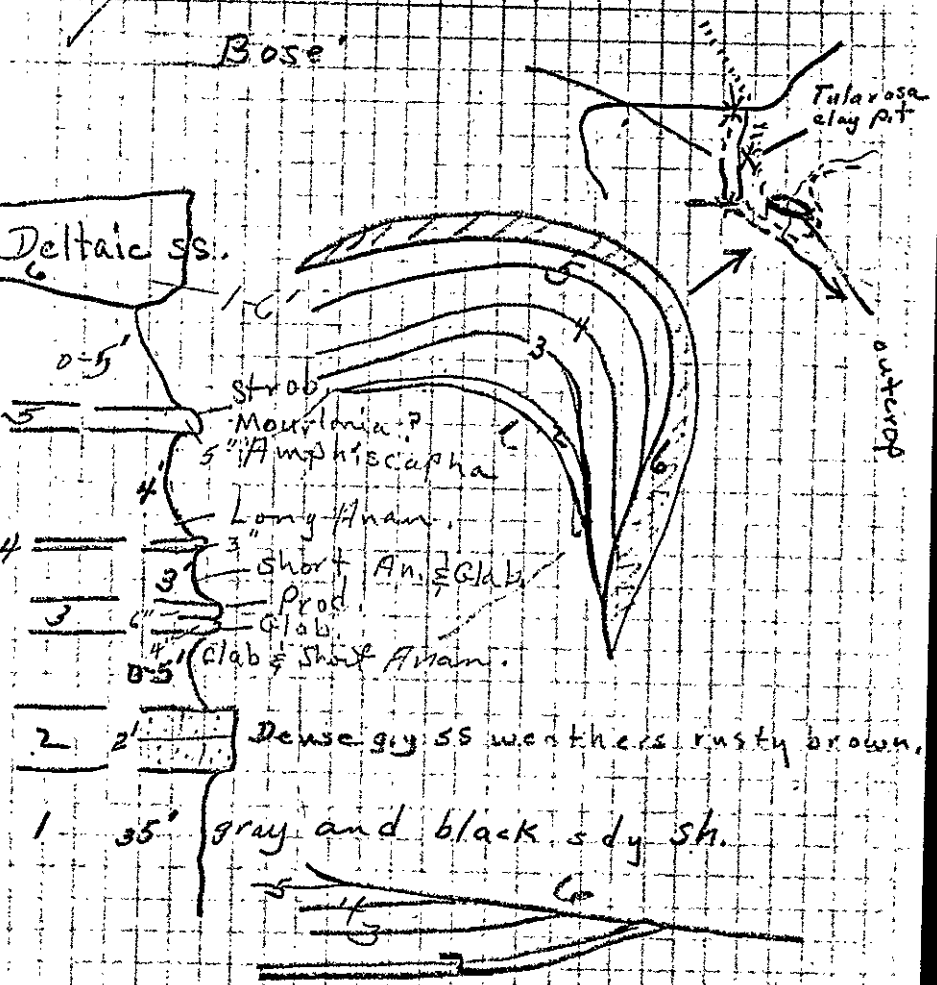 Bose'
Tularosa
clay pit
Deltaic ss.
6
1'-6'
0-5'
5
Strob.
Mourlonia?
5" Amphiscapha
4'
Long Anam.
4
3"
3'
Short An. & Glab.
Prod.
3
6"
Glab.
4"
0-5'
Glab & Short Anam.
2
2'
Dense gry ss weathers rusty brown.
1
35'
gray and black sdy sh.
5
4
3
2
1
6
outcrop
5
4
3
6